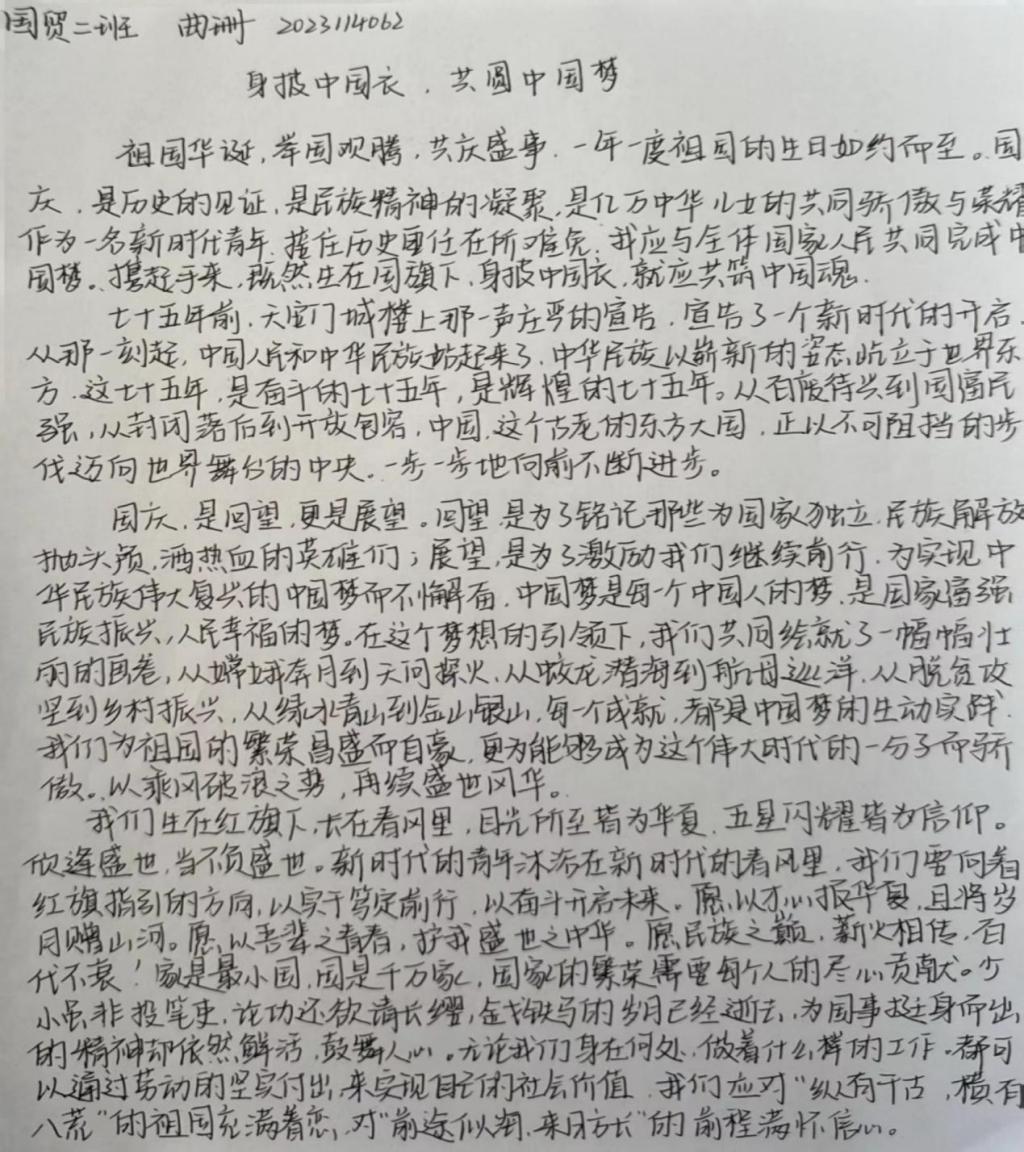 国贸二班 曲珊 2023114062
身披中国衣，共圆中国梦
祖国华诞，举国欢腾，共庆盛事，一年一度祖国的生日如约而至。国
庆，是历史的见证，是民族精神的凝聚，是亿万中华儿女的共同骄傲与荣耀
作为一名新时代青年，担任历史重任在所难免，我应与全体国家人民共同完成中
国梦。携起手来，既然生在国旗下，身披中国衣，就应共筑中国魂。
七十五年前，天安门城楼上那一声庄严的宣告，宣告了一个新时代的开启，
从那一刻起，中国人民和中华民族站起来了，中华民族以崭新的姿态屹立于世界东
方，这七十五年，是奋斗的七十五年，是辉煌的七十五年。从百废待兴到国富民
强，从封闭落后到开放包容，中国，这个古老的东方大国，正以不可阻挡的步
伐迈向世界舞台的中央，一步一步地向前不断进步。
国庆，是回望，更是展望。回望，是为了铭记那些为国家独立，民族解放
抛头颅，洒热血的英雄们；展望，是为了激励我们继续前行，为实现中
华民族伟大复兴的中国梦而不懈奋，中国梦是每一个中国人的梦，是国家富强
民族振兴，人民幸福的梦。在这个梦想的引领下，我们共同绘就了一幅幅壮
丽的画卷，从嫦娥奔月到天问探火，从蛟龙潜海到航母巡洋，从脱贫攻
坚到乡村振兴，从绿水青山到金山银山，每一个成就，都是中国梦的生动实践，
我们为祖国的繁荣昌盛而自豪，更为能够成为这个伟大时代的一分子而骄
傲。以乘风破浪之势，再续盛世风华。
我们生在红旗下，长在春风里，目光所至皆为华夏，五星闪耀皆为信仰。
欣逢盛世，当不负盛世。新时代的青年沐浴在新时代的春风里，我们要向着
红旗指引的方向，以实干笃定前行，以奋斗开启未来。愿，以寸心报华夏，且将岁
月赠山河。愿，以吾辈之青春，护我盛世之中华。愿民族之巅，薪火相传，百
代不衰！家是最小国，国是千万家，国家的繁荣需要每个人的尽心贡献。少
小虽非投笔吏，论功还欲请长缨，金戈铁马的岁月已经逝去，为国事挺身而出
的精神却依然鲜活，鼓舞人心。无论我们身在何处，做着什么样的工作。都可
以通过劳动的坚实付出，来实现自己的社会价值，我们应对“纵有千古，横有
八荒”的祖国充满眷恋，对“前途似海，来日方长”的前程满怀信心。